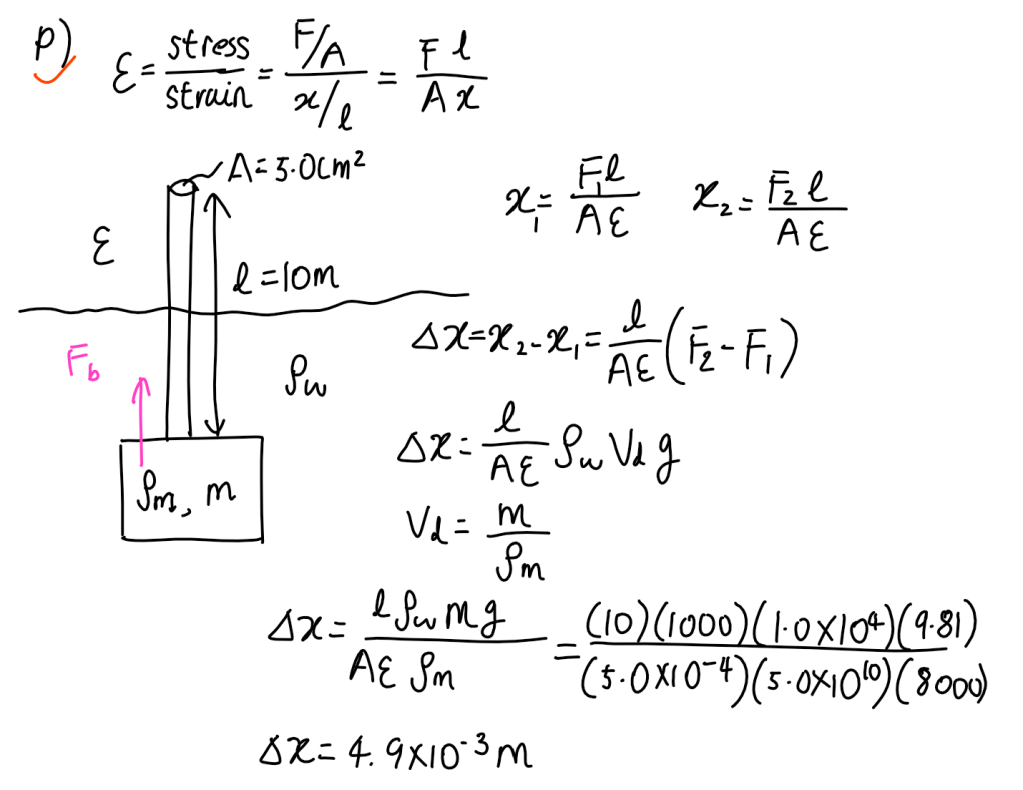 p) ε = stress/strain = (F/A)/(x/l) = Fl/Ax
A = 5.0cm²
x₁ = F₁l/Aε x₂ = F₂l/Aε
ε
l = 10m
Δx = x₂ - x₁ = l/Aε (F₂ - F₁)
F_b
ρw
Δx = l/Aε ρw Vd g
ρm, m
Vd = m/ρm
Δx = lρw mg/Aε ρm = (10)(1000)(1.0×10⁴)(9.81)/(5.0×10⁻⁴)(5.0×10¹⁰)(8000)
Δx = 4.9×10⁻³ m